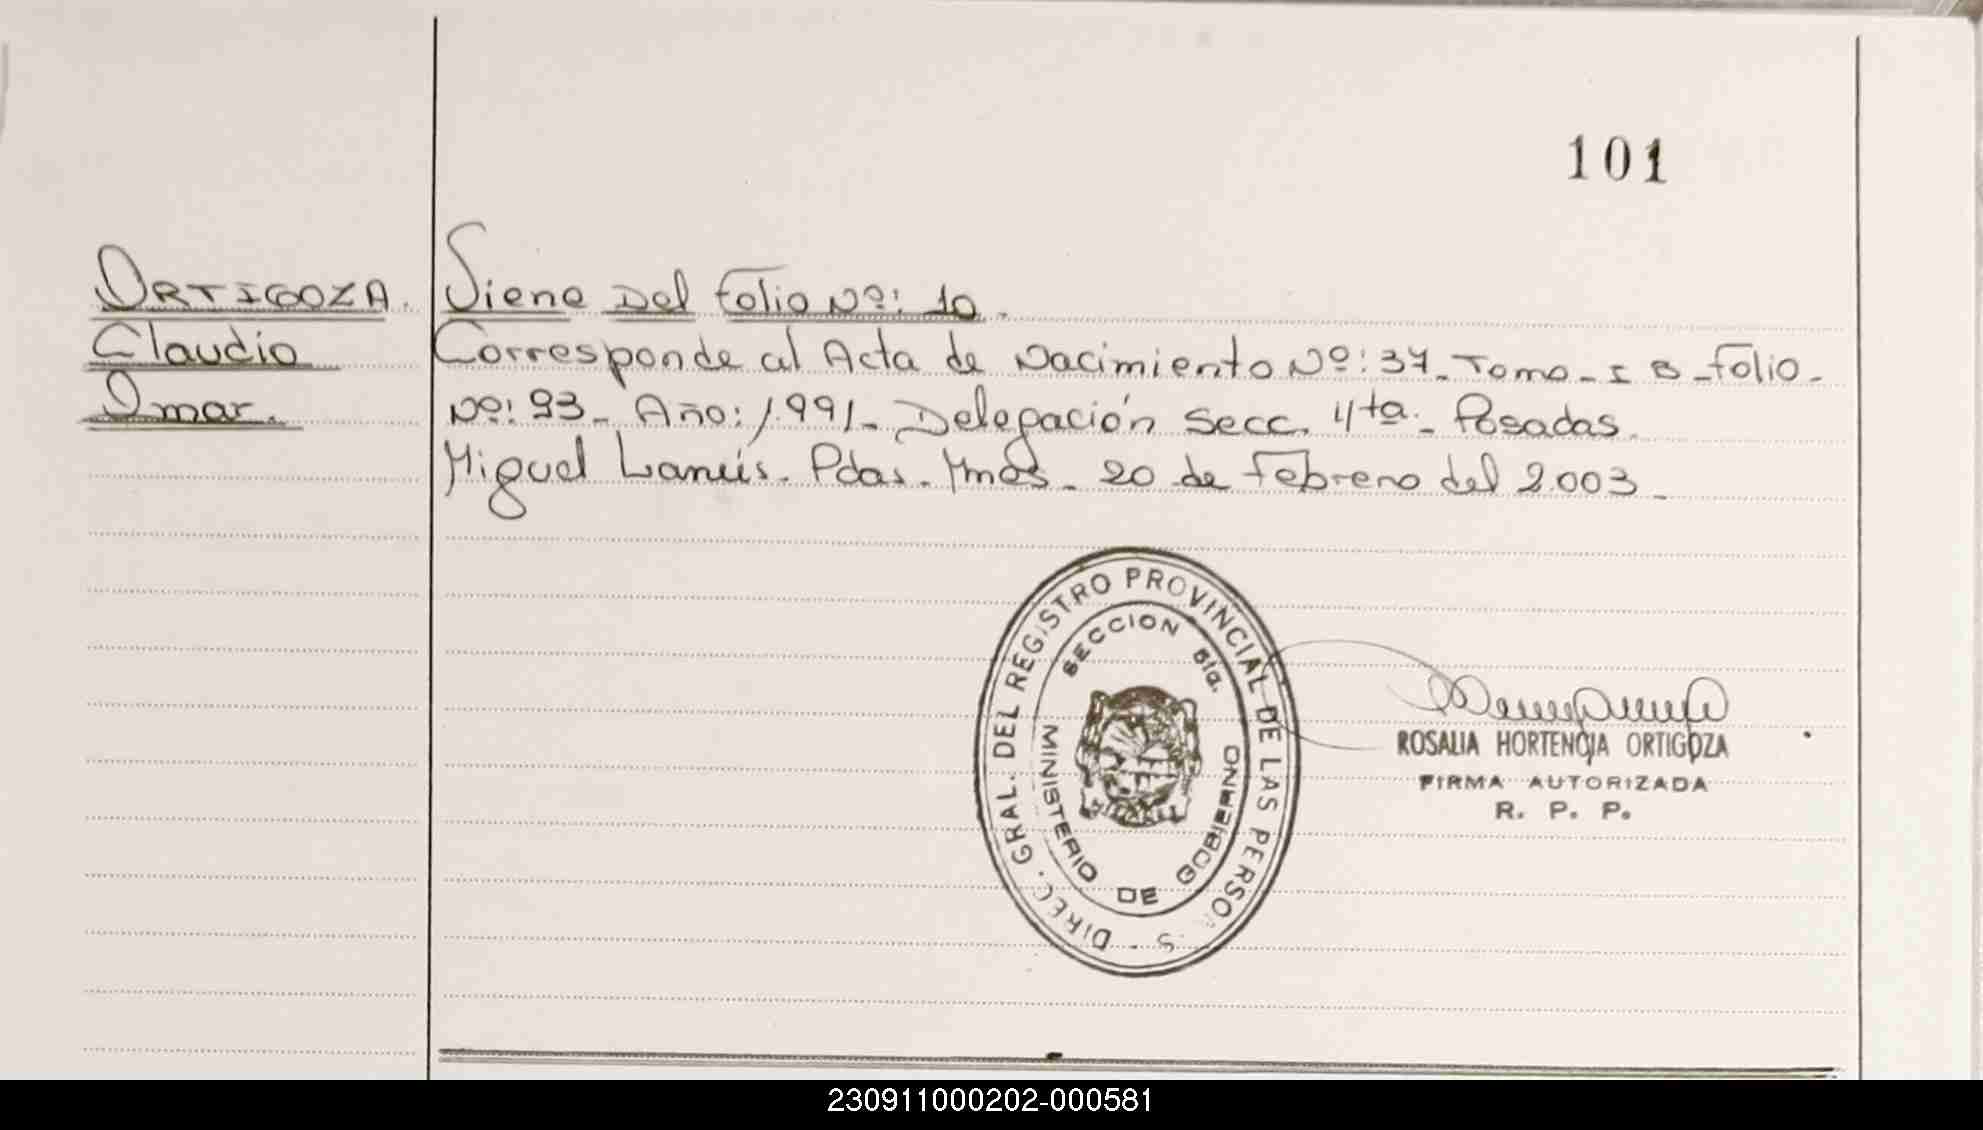 101
ORTIGOZA. Viene Del folio Nº: 10.
Claudio Corresponde al Acta de Nacimiento Nº: 37_ Tomo_ I B _folio_
Omar. Nº: 93_ Año: 1.991_ Delegación Secc. 4ta._ Posadas.
Miguel Lanús. Pdas. Mnes_ 20 de febrero del 2.003_
DIREC. GRAL. DEL REGISTRO PROVINCIAL DE LAS PERSO S
SECCION 5ta.
MINISTERIO DE GOBIERNO
ROSALIA HORTENCIA ORTIGOZA
FIRMA AUTORIZADA
R. P. P.
230911000202-000581